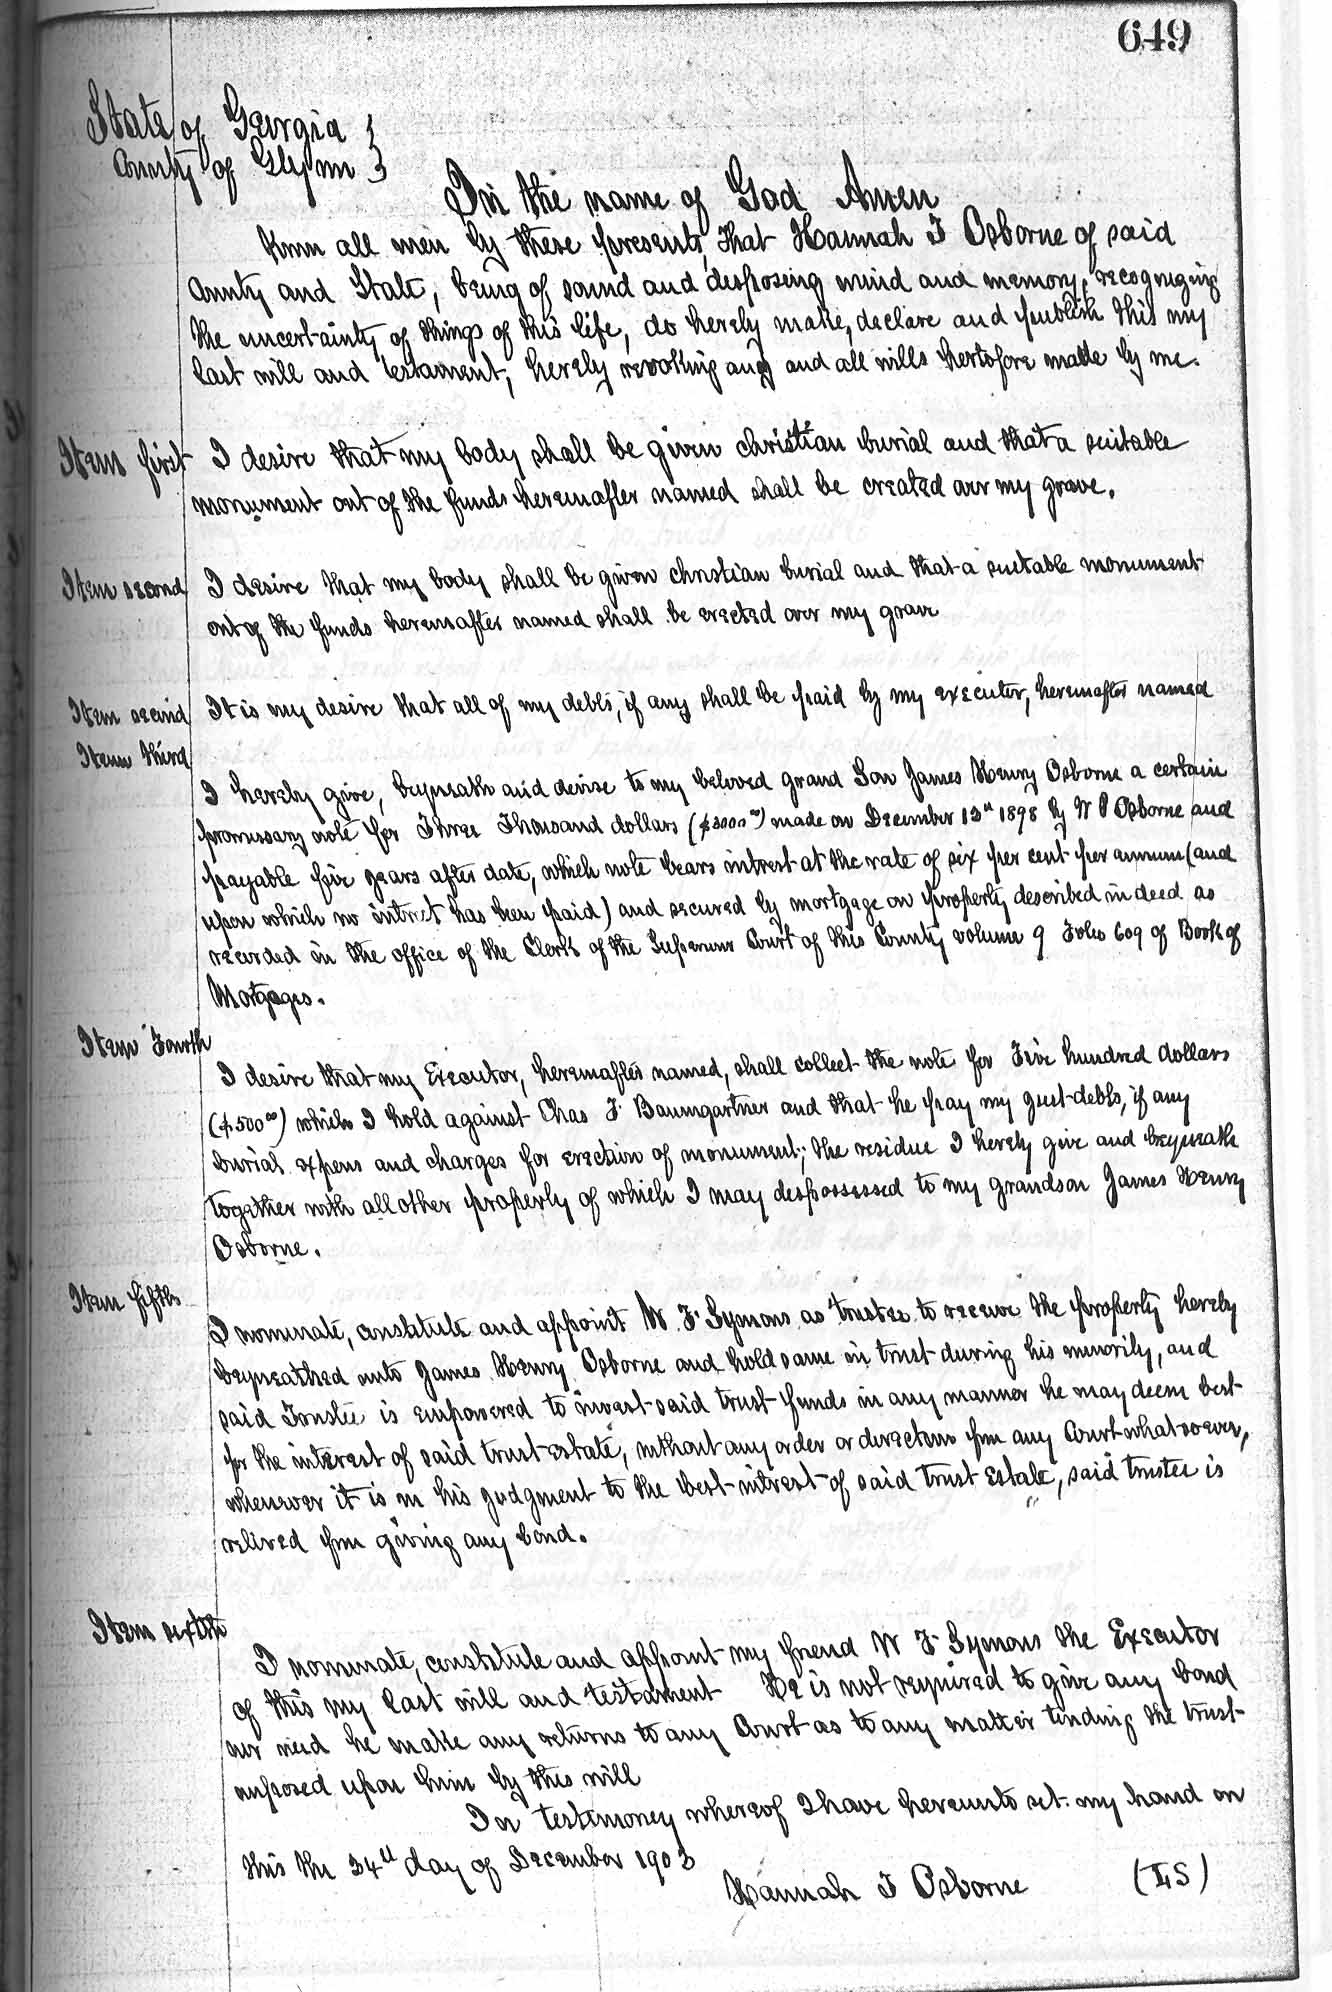 649
State of Georgia }
County of Glynn }
In the name of God Amen
Know all men by these presents, that Hannah F Osborne of said
County and State, being of sound and desposeing mind and memory, recognizing
the uncertainty of things of this life, do hereby make, declare and publish this my
last will and testament, hereby revoking any and all wills hertofore made by me.
Item first I desire that my body shall be given christian burial and that a suitable
monument out of the funds hereinafter named shall be created over my grave.
Item second I desire that my body shall be given christian burial and that a suitable monument
out of the funds hereinafter named shall be erected over my grave
Item second It is my desire that all of my debts, if any shall be paid by my executor, hereinafter named
Item third
I hereby give, bequeath and devise to my beloved grand Son James Henry Osborne a certain
promissary note for Three Thousand dollars ($3000 00) made on December 13th 1898 by W P Osborne and
payable five years after date, which note bears interest at the rate of six per cent per annum (and
upon which no intrest has been paid) and secured by mortgage on property described in deed as
recorded in the office of the Clerk of the Superior Court of this County volume 9 Folio 609 of Book of
Mortgages.
Item Fourth
I desire that my Executor, hereinafter named, shall collect the note for Five hundred dollars
($500 00) which I hold against Chas F. Baumgartner and that he pay my just debts, if any
burial expens and charges for erection of monument; the residue I hereby give and bequeath
together with all other property of which I may despossessed to my grandson James Henry
Osborne.
Item fifth
I nominate, constitute and appoint W. F. Symons as trustee to receive the property hereby
bequeathed unto James Henry Osborne and hold same in trust during his minority, and
said Trustee is empowered to invest said trust funds in any manner he may deem best
for the interest of said trust estate, without any order or directions from any Court whatsoever,
whenever it is in his judgment to the best intrest of said trust Estate, said trustee is
relived from giving any bond.
Item sixth
I nominate, constitute and appoint my friend W F. Symons the Executor
of this my last will and testament He is not required to give any bond
nor need he make any returns to any Court as to any matter tending the trust
imposed upon him by this will
In testimoney whereof I have hereunto set my hand on
this the 24th day of December 1903
Hannah F Osborne (LS)